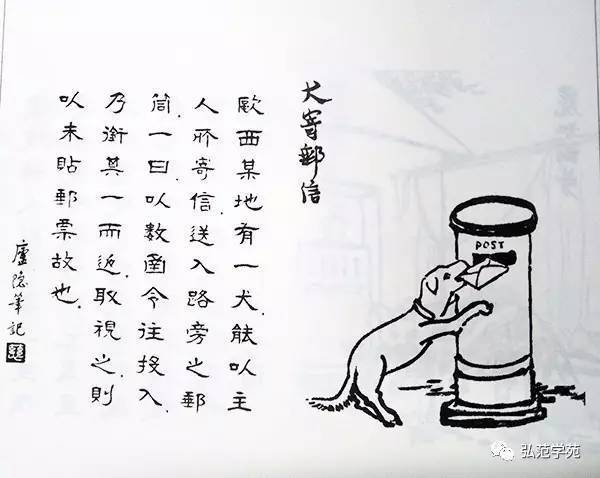 犬寄郵信
POST
歐西某地有一犬、能以主
人所寄信、送入路旁之郵
筒、一日、以數函令往投入、
乃銜其一而返、取視之、則
以未貼郵票故也、
廬隱筆記
弘范学苑